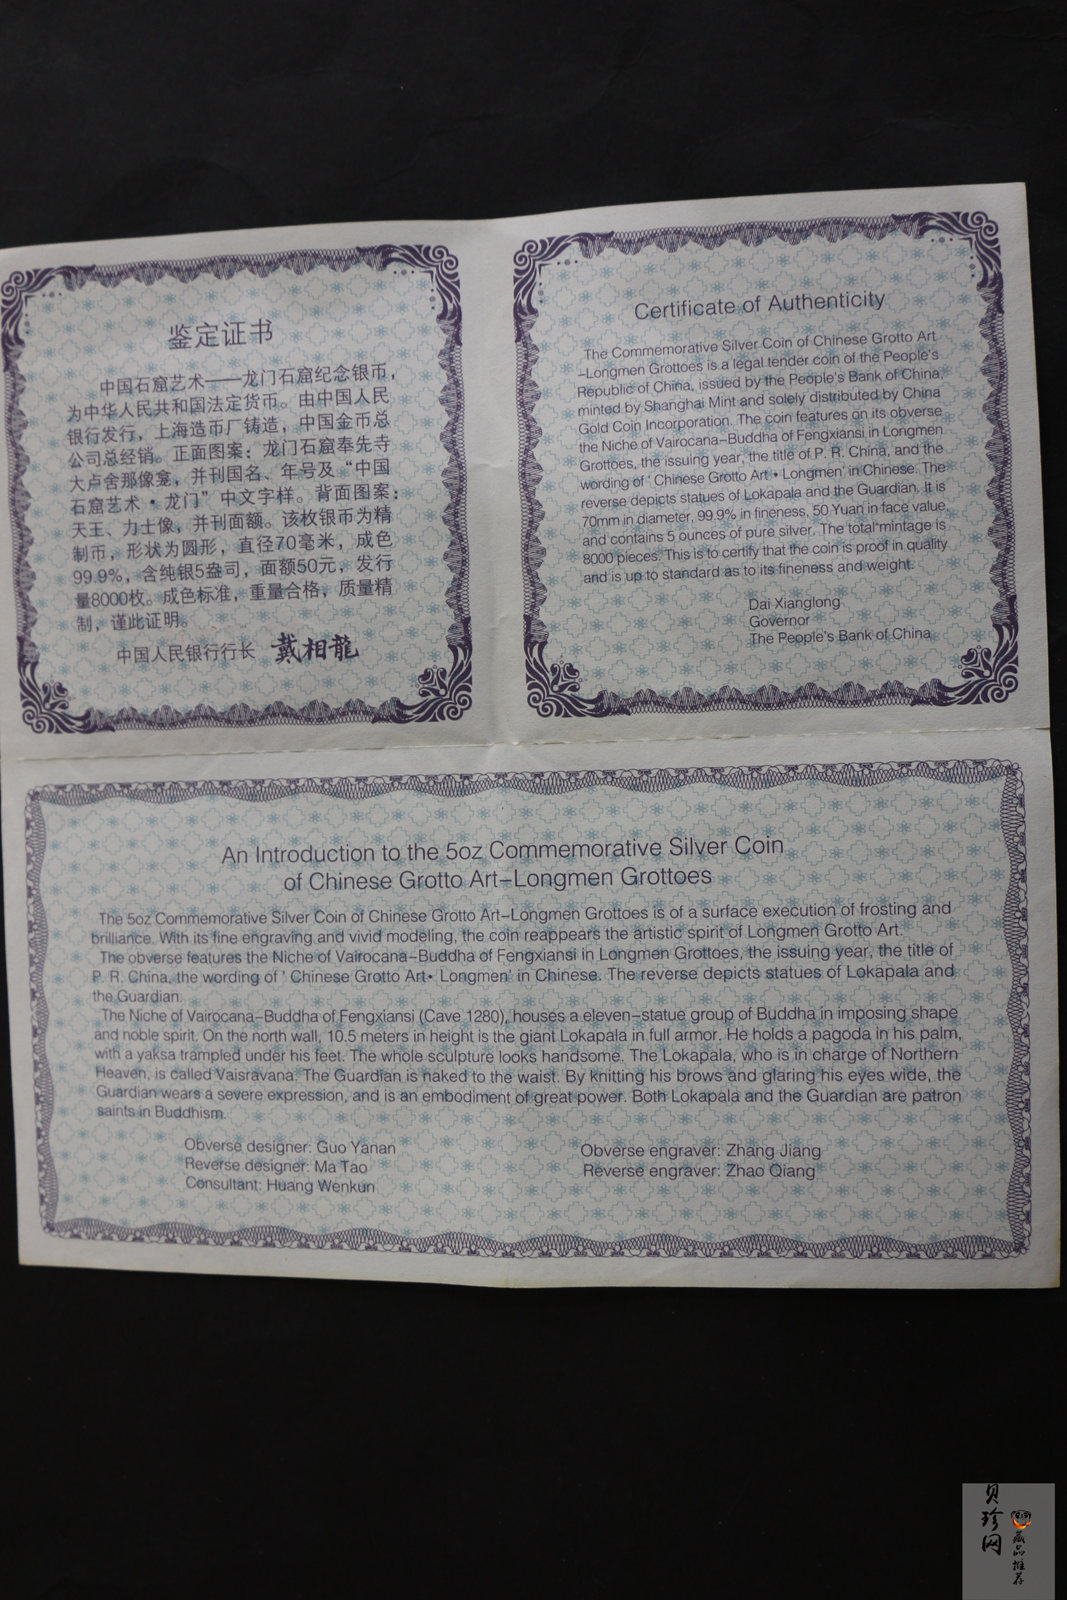 鉴定证书
中国石窟艺术——龙门石窟纪念银币，
为中华人民共和国法定货币。由中国人民
银行发行，上海造币厂铸造，中国金币总
公司总经销。正面图案：龙门石窟奉先寺
大卢舍那像龛，并刊国名、年号及“中国
石窟艺术·龙门”中文字样。背面图案：
天王、力士像，并刊面额。该枚银币为精
制币，形状为圆形，直径70毫米，成色
99.9%，含纯银5盎司，面额50元，发行
量8000枚。成色标准，重量合格，质量精
制，谨此证明。
中国人民银行行长 戴相龍
Certificate of Authenticity
The Commemorative Silver Coin of Chinese Grotto Art
-Longmen Grottoes is a legal tender coin of the People's
Republic of China, issued by the People's Bank of China,
minted by Shanghai Mint and solely distributed by China
Gold Coin Incorporation. The coin features on its obverse
the Niche of Vairocana-Buddha of Fengxiansi in Longmen
Grottoes, the issuing year, the title of P. R. China, and the
wording of ' Chinese Grotto Art • Longmen' in Chinese. The
reverse depicts statues of Lokapala and the Guardian. It is
70mm in diameter, 99.9% in fineness, 50 Yuan in face value,
and contains 5 ounces of pure silver. The total mintage is
8000 pieces. This is to certify that the coin is proof in quality
and is up to standard as to its fineness and weight.
Dai Xianglong
Governor
The People's Bank of China
An Introduction to the 5oz Commemorative Silver Coin
of Chinese Grotto Art-Longmen Grottoes
The 5oz Commemorative Silver Coin of Chinese Grotto Art-Longmen Grottoes is of a surface execution of frosting and
brilliance. With its fine engraving and vivid modeling, the coin reappears the artistic spirit of Longmen Grotto Art.
The obverse features the Niche of Vairocana-Buddha of Fengxiansi in Longmen Grottoes, the issuing year, the title of
P. R. China, the wording of ' Chinese Grotto Art• Longmen' in Chinese. The reverse depicts statues of Lokapala and
the Guardian.
The Niche of Vairocana-Buddha of Fengxiansi (Cave 1280), houses a eleven-statue group of Buddha in imposing shape
and noble spirit. On the north wall, 10.5 meters in height is the giant Lokapala in full armor. He holds a pagoda in his palm,
with a yaksa trampled under his feet. The whole sculpture looks handsome. The Lokapala, who is in charge of Northern
Heaven, is called Vaisravana. The Guardian is naked to the waist. By knitting his brows and glaring his eyes wide, the
Guardian wears a severe expression, and is an embodiment of great power. Both Lokapala and the Guardian are patron
saints in Buddhism.
Obverse designer: Guo Yanan
Reverse designer: Ma Tao
Consultant: Huang Wenkun
Obverse engraver: Zhang Jiang
Reverse engraver: Zhao Qiang
贝珍网
藏品推荐